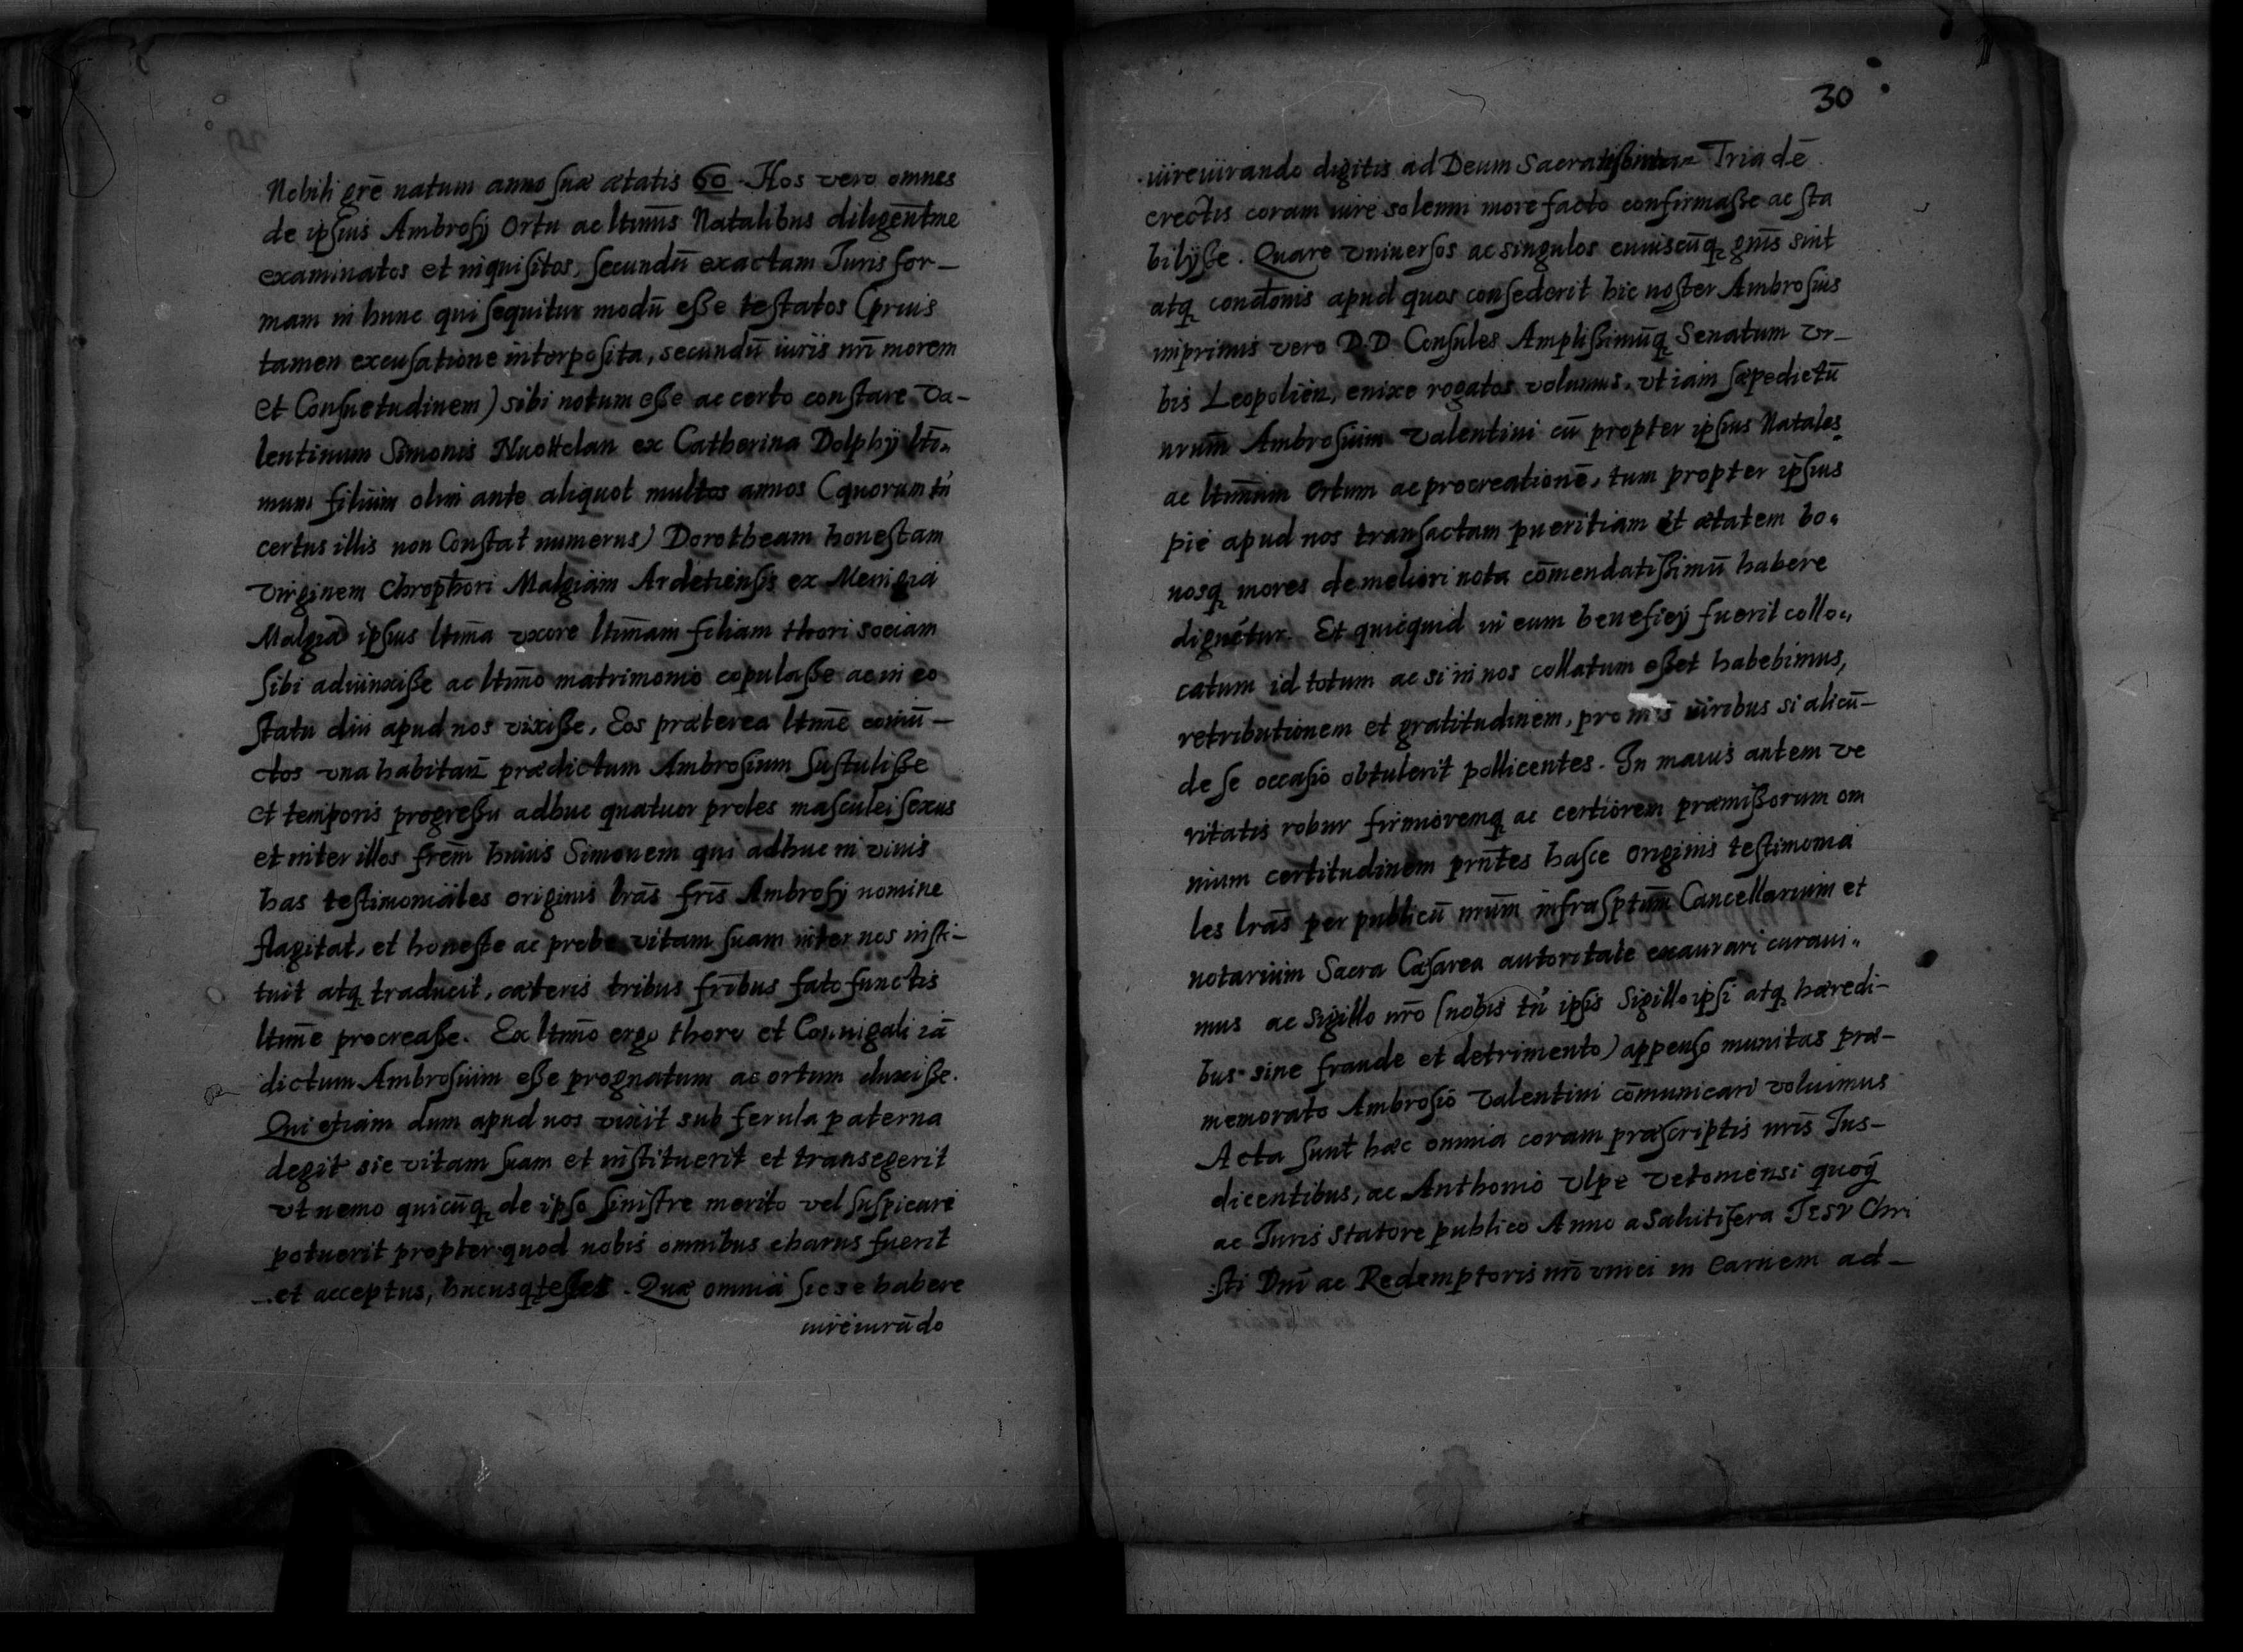 Nobili grē natum anno ſuæ ætatis 60. Hos vero omnes
de ipſius Ambroſij Ortu ac ltimis Natalibus diligentme
examinatos et inquiſitos, ſecundū exactam Juris for-
mam in hunc qui ſequitur modū eſſe teſtatos (prius
tamen excuſatione interpoſita, secundū iuris nr̄i morem
et Conſuetudinem) sibi notum eſſe ac certo conſtare Va-
lentinum Simonis ex Catherina Dolphÿ ltī-
mum filium olim ante aliquot multos annos (quorum tn̄
certus illis non Conſtat numerus) Dorotheam honeſtam
Virginem Chroph̄ori Malgiäm Ardetienſis ex
ipſius ltīma vxore ltīmam filiam thori sociam
ſibi adiunxiſſe ac ltīmo matrimonio copulaſſe ac in eo
ſtatu diu apud nos vixiſſe, Eos præterea ltīme coniū-
ctos vna habitan̄ prædictum Ambroſium ſuſtuliſſe
et temporis progreſſu adhuc quatuor proles maſculei ſexus
et inter illos frēm huius Simonem qui adhuc in viuis
has teſtimoniäles originis lrās frīs Ambroſij nomine
flagitat, et honeſte ac probe vitam ſuam inter nos inſti-
tuit atq traducit, cæteris tribus frībus fato functis
ltīme procreaſſe. Ex ltīmo ergo thoro et Coniugali iā
dictum Ambroſium eſſe prognatum ac ortum duxiſſe.
Qui etiam dum apud nos vixit sub ferula paterna
degit sic vitam ſuam et inſtituerit et transegerit
vt nemo quicūq de ipſo ſiniſtre merito vel ſuſpicari
potuerit propter quod nobis omnibus charus fuerit
et acceptus, hucusq teſtes. Quæ omniä ſic se habere
iureiurādo
30
iureiurando digitis ad Deum Sacratiſſimam Tria dē
erectis coram iure solenni more facto confirmaſſe ac ſta
bilÿſſe. Quare vniuerſos ac singulos cuiuscūq gnīs sint
atq condōnis apud quos conſederit hic noſter Ambroſius
inprimis vero D.D. Conſules Ampliſſimūq Senatum Vr-
bis Leopolien, enixe rogatos volumus, vt iam ſæpedictū
nrum̄ Ambroſium Valentini cū propter ipſius Natales
ac ltīmum Ortum ac procreationē, tum propter ipſius
pie apud nos tranſactam pueritiam et ætatem bo-
nosq mores de meliori nota cōmendatiſſimū habere
dignētur. Et quicquid in eum beneficij fuerit collo-
catum id totum ac si in nos collatum eſſet habebimus,
retributionem et gratitudinem, pro nr̄is viribus si alicū-
de ſe occaſio obtulerit pollicentes. In maius autem ve
ritatis robur firmioremq ac certiorem præmiſſorum om
nium certitudinem prn̄tes haſce originis teſtimonia
les lrās per publicū nrūm infraſptūm Cancellarium et
notarium Sacra Cæſarea autoritate exaurari curaui-
mus ac Sigillo nr̄o (nobis tn̄ ipſis Sigillo ipſi atq hæredi-
bus sine fraude et detrimento) appenſo munitas præ-
memorato Ambroſio Valentini cōmunicari voluimus
Acta ſunt hæc omnia coram præſcriptis nr̄is Jus-
dicentibus, ac Anthonio Vlpe Vetomensi quoq̄
ac Juris Statore publico Anno a Salutifera Jesv Chri
ſti Dn̄i ac Redemptoris nr̄i vnici in Carnem ad-